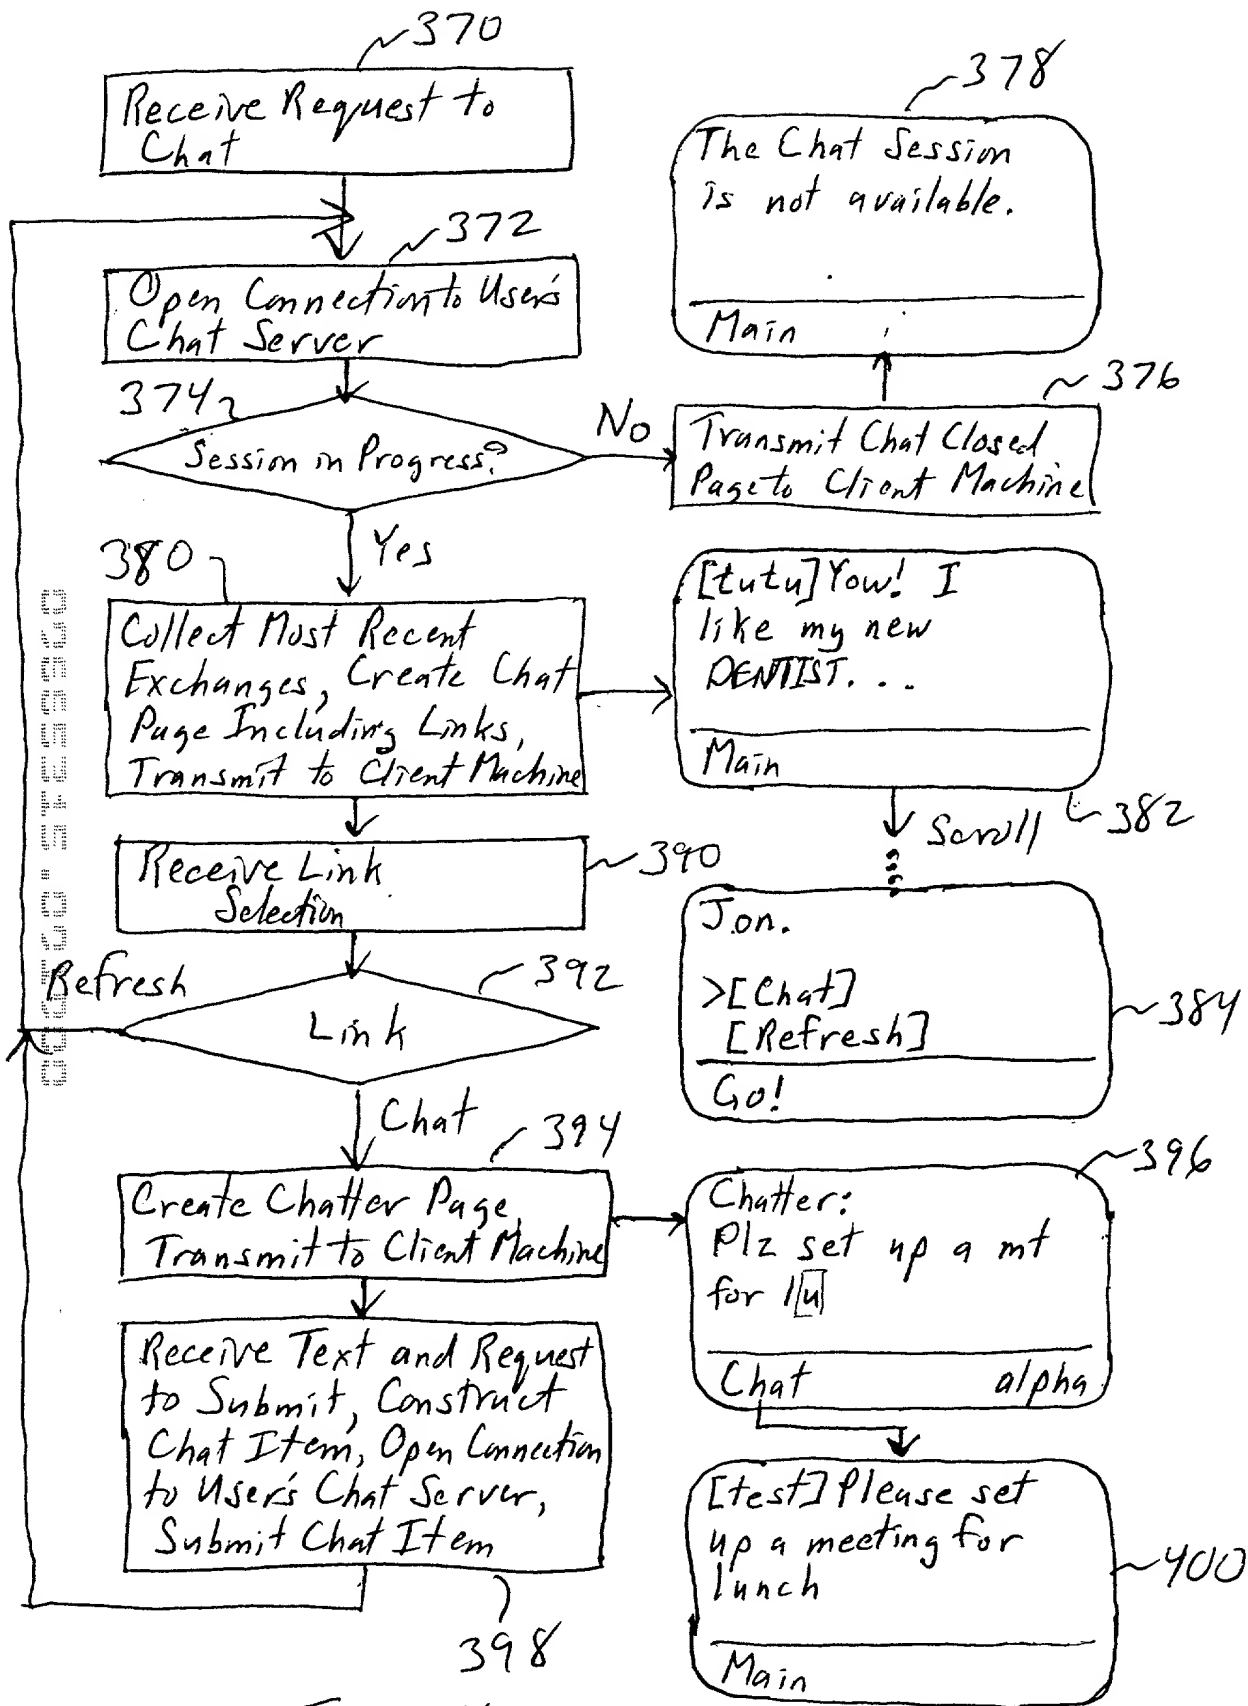 370
Receive Request to
Chat
378
The Chat Session
is not available.
Main
372
Open Connection to User's
Chat Server
374
Session in Progress?
No
376
Transmit Chat Closed
Page to Client Machine
Yes
380
Collect Most Recent
Exchanges, Create Chat
Page Including Links,
Transmit to Client Machine
[tutu] Yow! I
like my new
DENTIST...
Main
382
Scroll
390
Receive Link
Selection
Jon.
>[Chat]
[Refresh]
Go!
384
Refresh
392
Link
Chat
394
Create Chatter Page,
Transmit to Client Machine
396
Chatter:
Plz set up a mt
for lu
Chat alpha
Receive Text and Request
to Submit, Construct
Chat Item, Open Connection
to User's Chat Server,
Submit Chat Item
398
[test] Please set
up a meeting for
lunch
Main
400